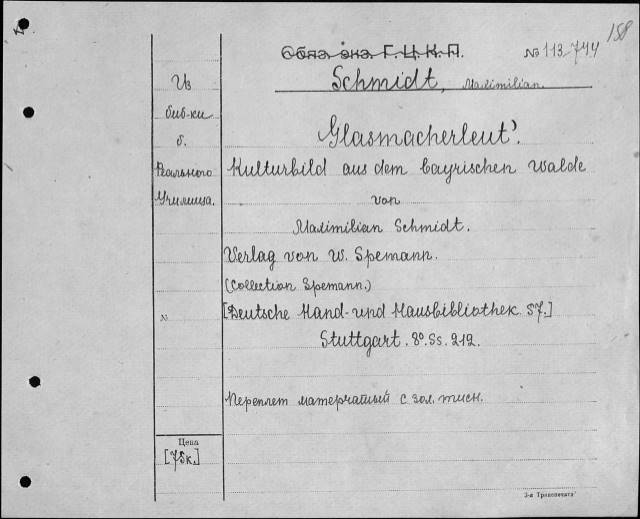 158
Обяз. экз. Г.Ц.К.П.
№ 113-744
Schmidt, Maximilian.
Из
биб-ки
б.
Реального
Училища.
Glasmacherleut'.
Kulturbild aus dem bayrischen Walde
von
Maximilian Schmidt.
Verlag von W. Spemann.
(Collection Spemann.)
[Deutsche Hand- und Hausbibliothek 57.]
Stuttgart. 8º. Ss. 212.
№
Переплет матерчатый с зол. тисн.
Цена
[75к.]
3-я Транспечать